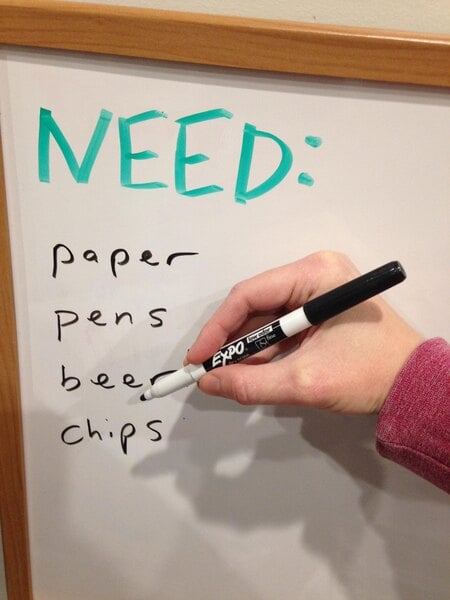 NEED:
paper
pens
beer
chips
EXPO
fine